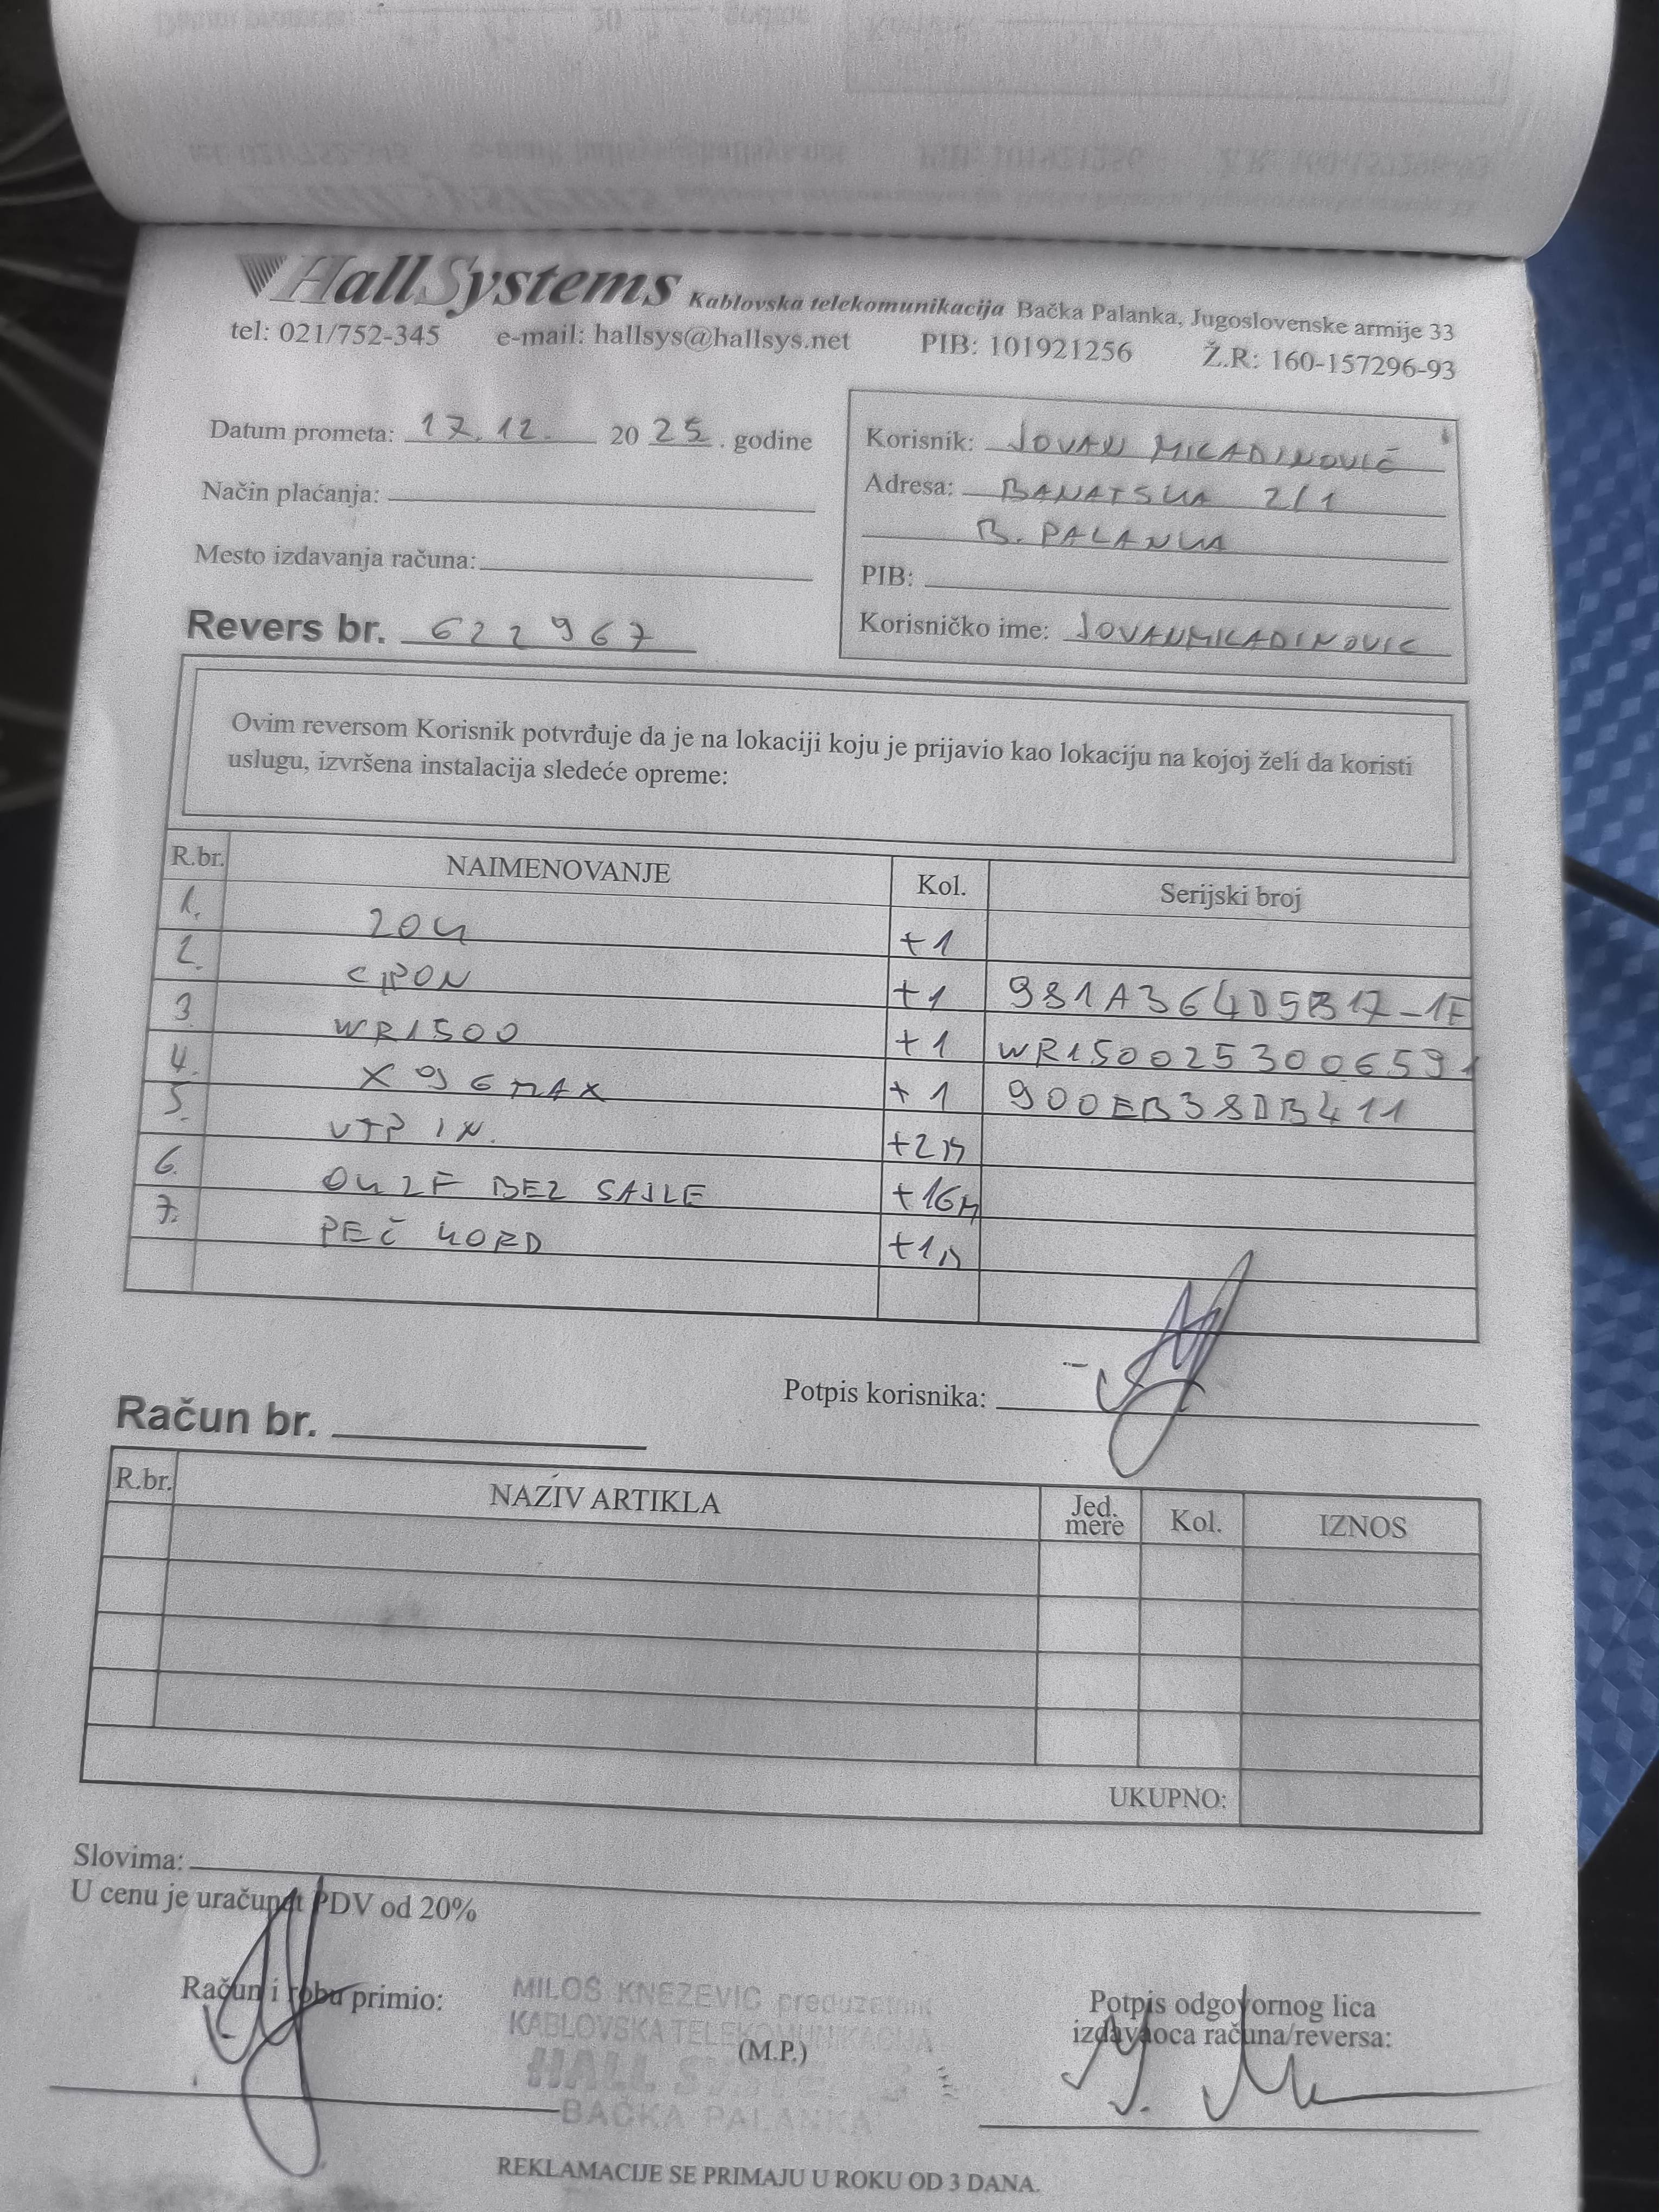 HallSystems Kablovska telekomunikacija Bačka Palanka, Jugoslovenske armije 33
tel: 021/752-345 e-mail: hallsys@hallsys.net PIB: 101921256 Ž.R: 160-157296-93
Datum prometa: 17.12. 2025. godine
Način plaćanja:
Mesto izdavanja računa:
Revers br. 622967
Korisnik: JOVAN MILADINOVIĆ
Adresa: BANATSKA 2/1
B. PALANKA
PIB:
Korisničko ime: JOVANMILADINOVIC
Ovim reversom Korisnik potvrđuje da je na lokaciji koju je prijavio kao lokaciju na kojoj želi da koristi
uslugu, izvršena instalacija sledeće opreme:
R.br. NAIMENOVANJE Kol. Serijski broj
1. ZOK +1
2. GPON +1 981A364D5B17-1F
3. WR1500 +1 WR1500253006591
4. X96MAX +1 900EB38DB411
5. UTP IN. +2M
6. OK 2F BEZ SAJLE +16M
7. PEČ KORD +1M
Potpis korisnika:
Račun br.
R.br. NAZIV ARTIKLA Jed. mere Kol. IZNOS
UKUPNO:
Slovima:
U cenu je uračunat PDV od 20%
Račun i robu primio:
MILOŠ KNEŽEVIĆ preduzetnik
KABLOVSKA TELEKOMUNIKACIJA
(M.P.)
HALL SYSTEMS
BAČKA PALANKA
Potpis odgovornog lica
izdavaoca računa/reversa:
REKLAMACIJE SE PRIMAJU U ROKU OD 3 DANA.